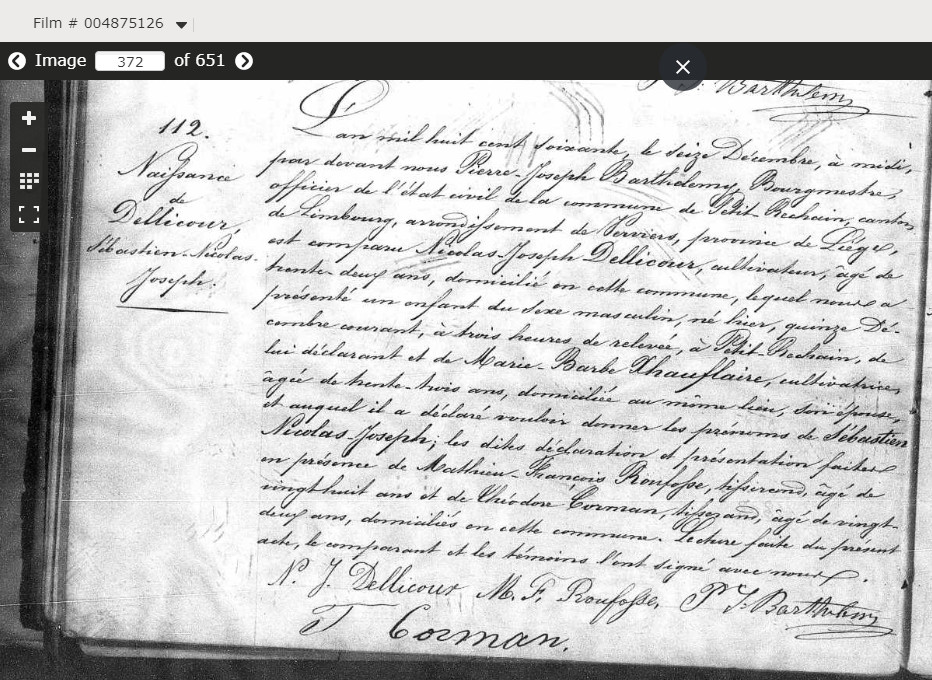 Film # 004875126
Image 372 of 651
Barthélemy
112.
Naissance
de
Dellicour,
Sébastien-Nicolas-
Joseph.
L'an mil huit cent soixante, le seize Décembre, à midi,
par devant nous Pierre-Joseph Barthélemy, Bourgmestre,
officier de l'état civil de la commune de Petit Rechain, canton
de Limbourg, arrondissement de Verviers, province de Liége,
est comparu Nicolas-Joseph Dellicour, cultivateur, âgé de
trente-deux ans, domicilié en cette commune, lequel nous a
présenté un enfant du sexe masculin, né hier, quinze Dé-
cembre courant, à trois heures de relevée, à Petit-Rechain, de
lui déclarant et de Marie-Barbe Xhauflaire, cultivatrice,
âgée de trente-trois ans, domiciliée au même lieu, son épouse,
et auquel il a déclaré vouloir donner les prénoms de Sébastien
Nicolas-Joseph; les dites déclaration et présentation faites
en présence de Mathieu-François Roufosse, tisserand, âgé de
vingt-huit ans et de Théodore Corman, tisserand, âgé de vingt-
deux ans, domiciliés en cette commune. Lecture faite du présent
acte, le comparant et les témoins l'ont signé avec nous.
N. J. Dellicour M. F. Roufosse, P. J. Barthélemy
T Corman.